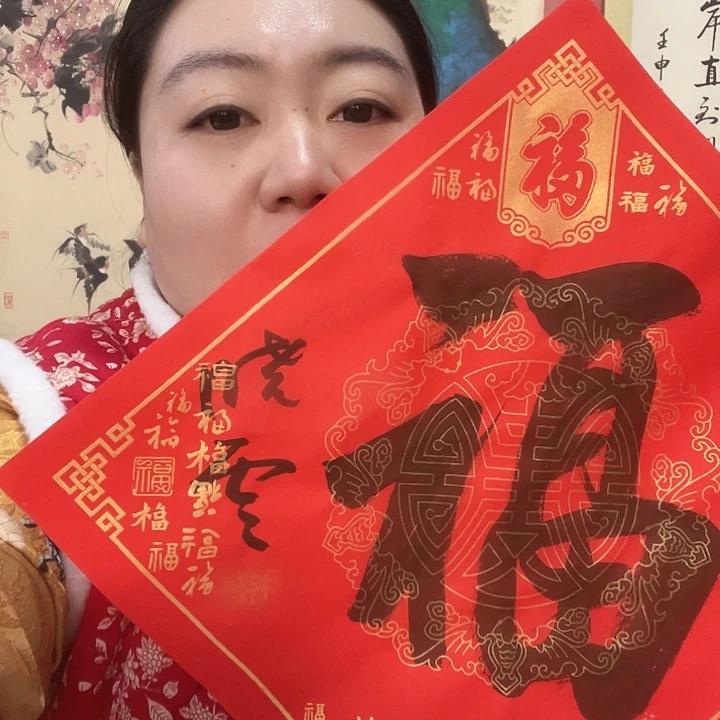 福
福
福
福
福
福
福
福
晓云
福
福
福
福
福
福
福
福
福
福
岸直到
壬申